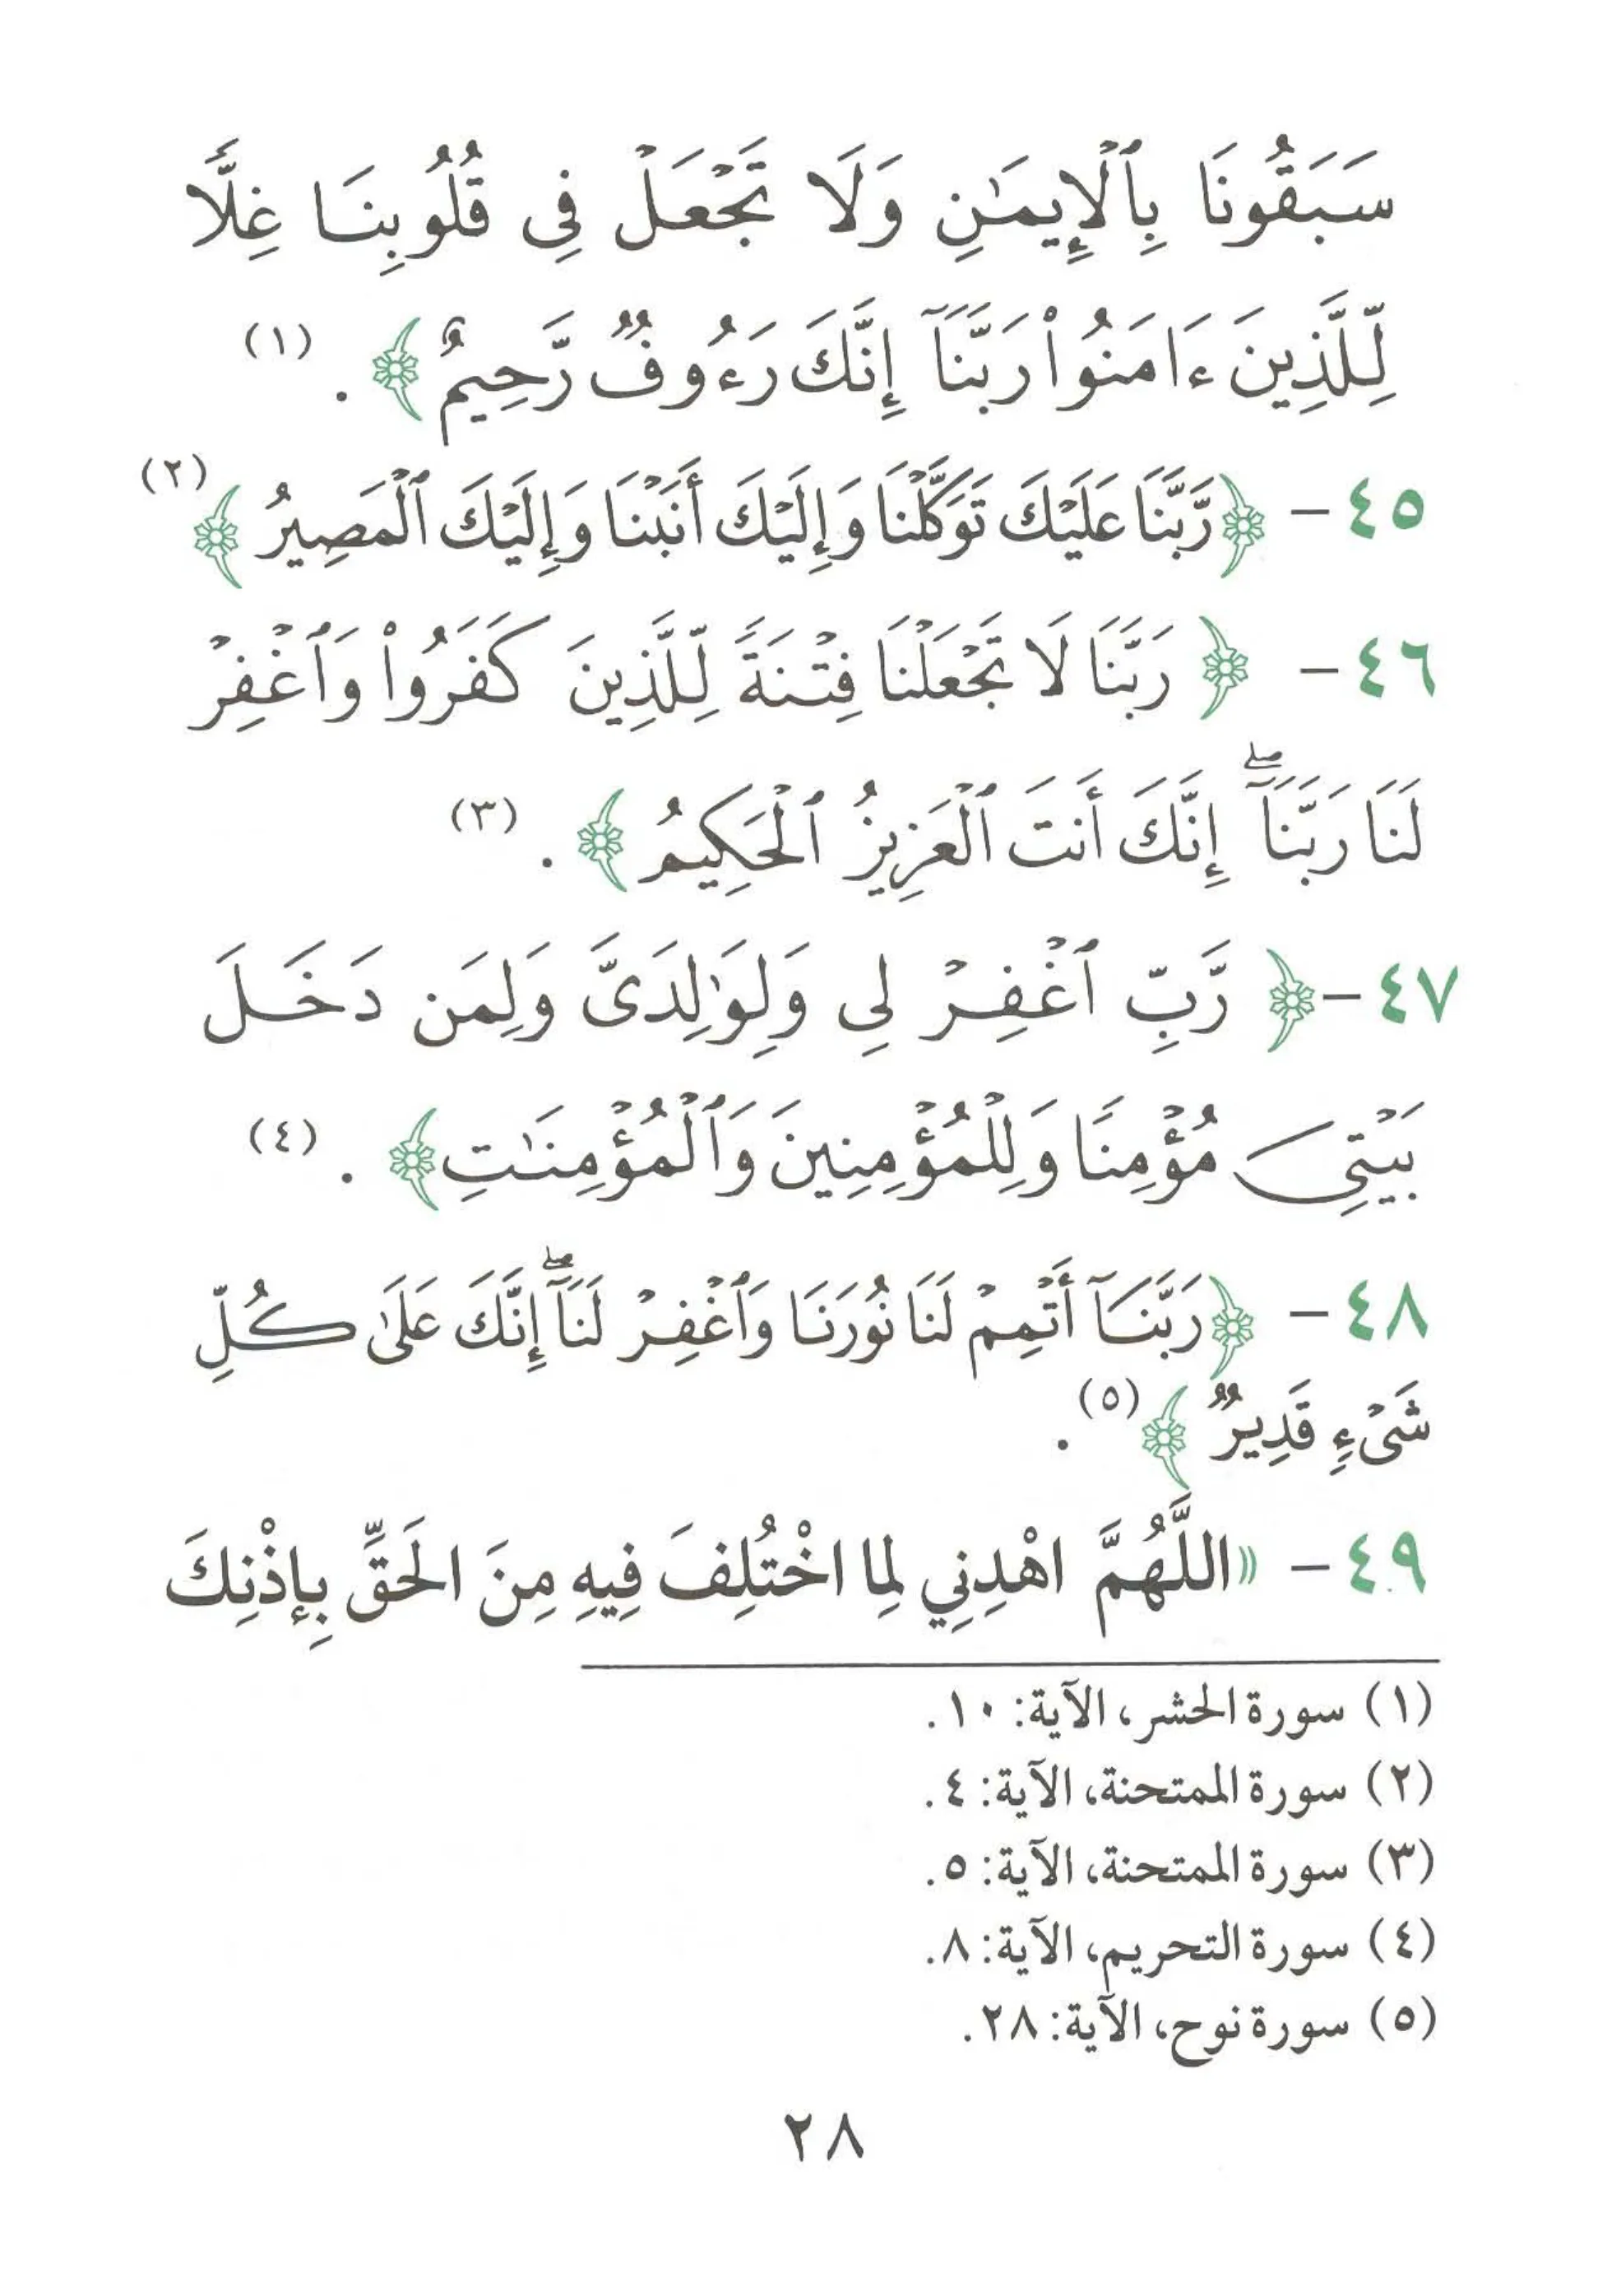 سَبَقُونَا بِٱلْإِيمَٰنِ وَلَا تَجْعَلْ فِى قُلُوبِنَا غِلًّا
لِّلَّذِينَ ءَامَنُوا۟ رَبَّنَآ إِنَّكَ رَءُوفٌ رَّحِيمٌ ﴾ . (١)
٤٥ - ﴿ رَّبَّنَا عَلَيْكَ تَوَكَّلْنَا وَإِلَيْكَ أَنَبْنَا وَإِلَيْكَ ٱلْمَصِيرُ ﴾ (٢)
٤٦ - ﴿ رَبَّنَا لَا تَجْعَلْنَا فِتْنَةً لِّلَّذِينَ كَفَرُوا۟ وَٱغْفِرْ
لَنَا رَبَّنَآ ۖ إِنَّكَ أَنتَ ٱلْعَزِيزُ ٱلْحَكِيمُ ﴾ . (٣)
٤٧ - ﴿ رَّبِّ ٱغْفِرْ لِى وَلِوَٰلِدَىَّ وَلِمَن دَخَلَ
بَيْتِىَ مُؤْمِنًا وَلِلْمُؤْمِنِينَ وَٱلْمُؤْمِنَٰتِ ﴾ . (٤)
٤٨ - ﴿ رَبَّنَآ أَتْمِمْ لَنَا نُورَنَا وَٱغْفِرْ لَنَآ ۖ إِنَّكَ عَلَىٰ كُلِّ
شَىْءٍ قَدِيرٌ ﴾ (٥) .
٤٩ - «اللَّهُمَّ اهْدِنِي لِما اخْتُلِفَ فِيهِ مِنَ الحَقِّ بِإذْنِكَ
(١) سورة الحشر، الآية: ١٠.
(٢) سورة الممتحنة، الآية: ٤.
(٣) سورة الممتحنة، الآية: ٥.
(٤) سورة التحريم، الآية: ٨.
(٥) سورة نوح، الآية: ٢٨.
٢٨